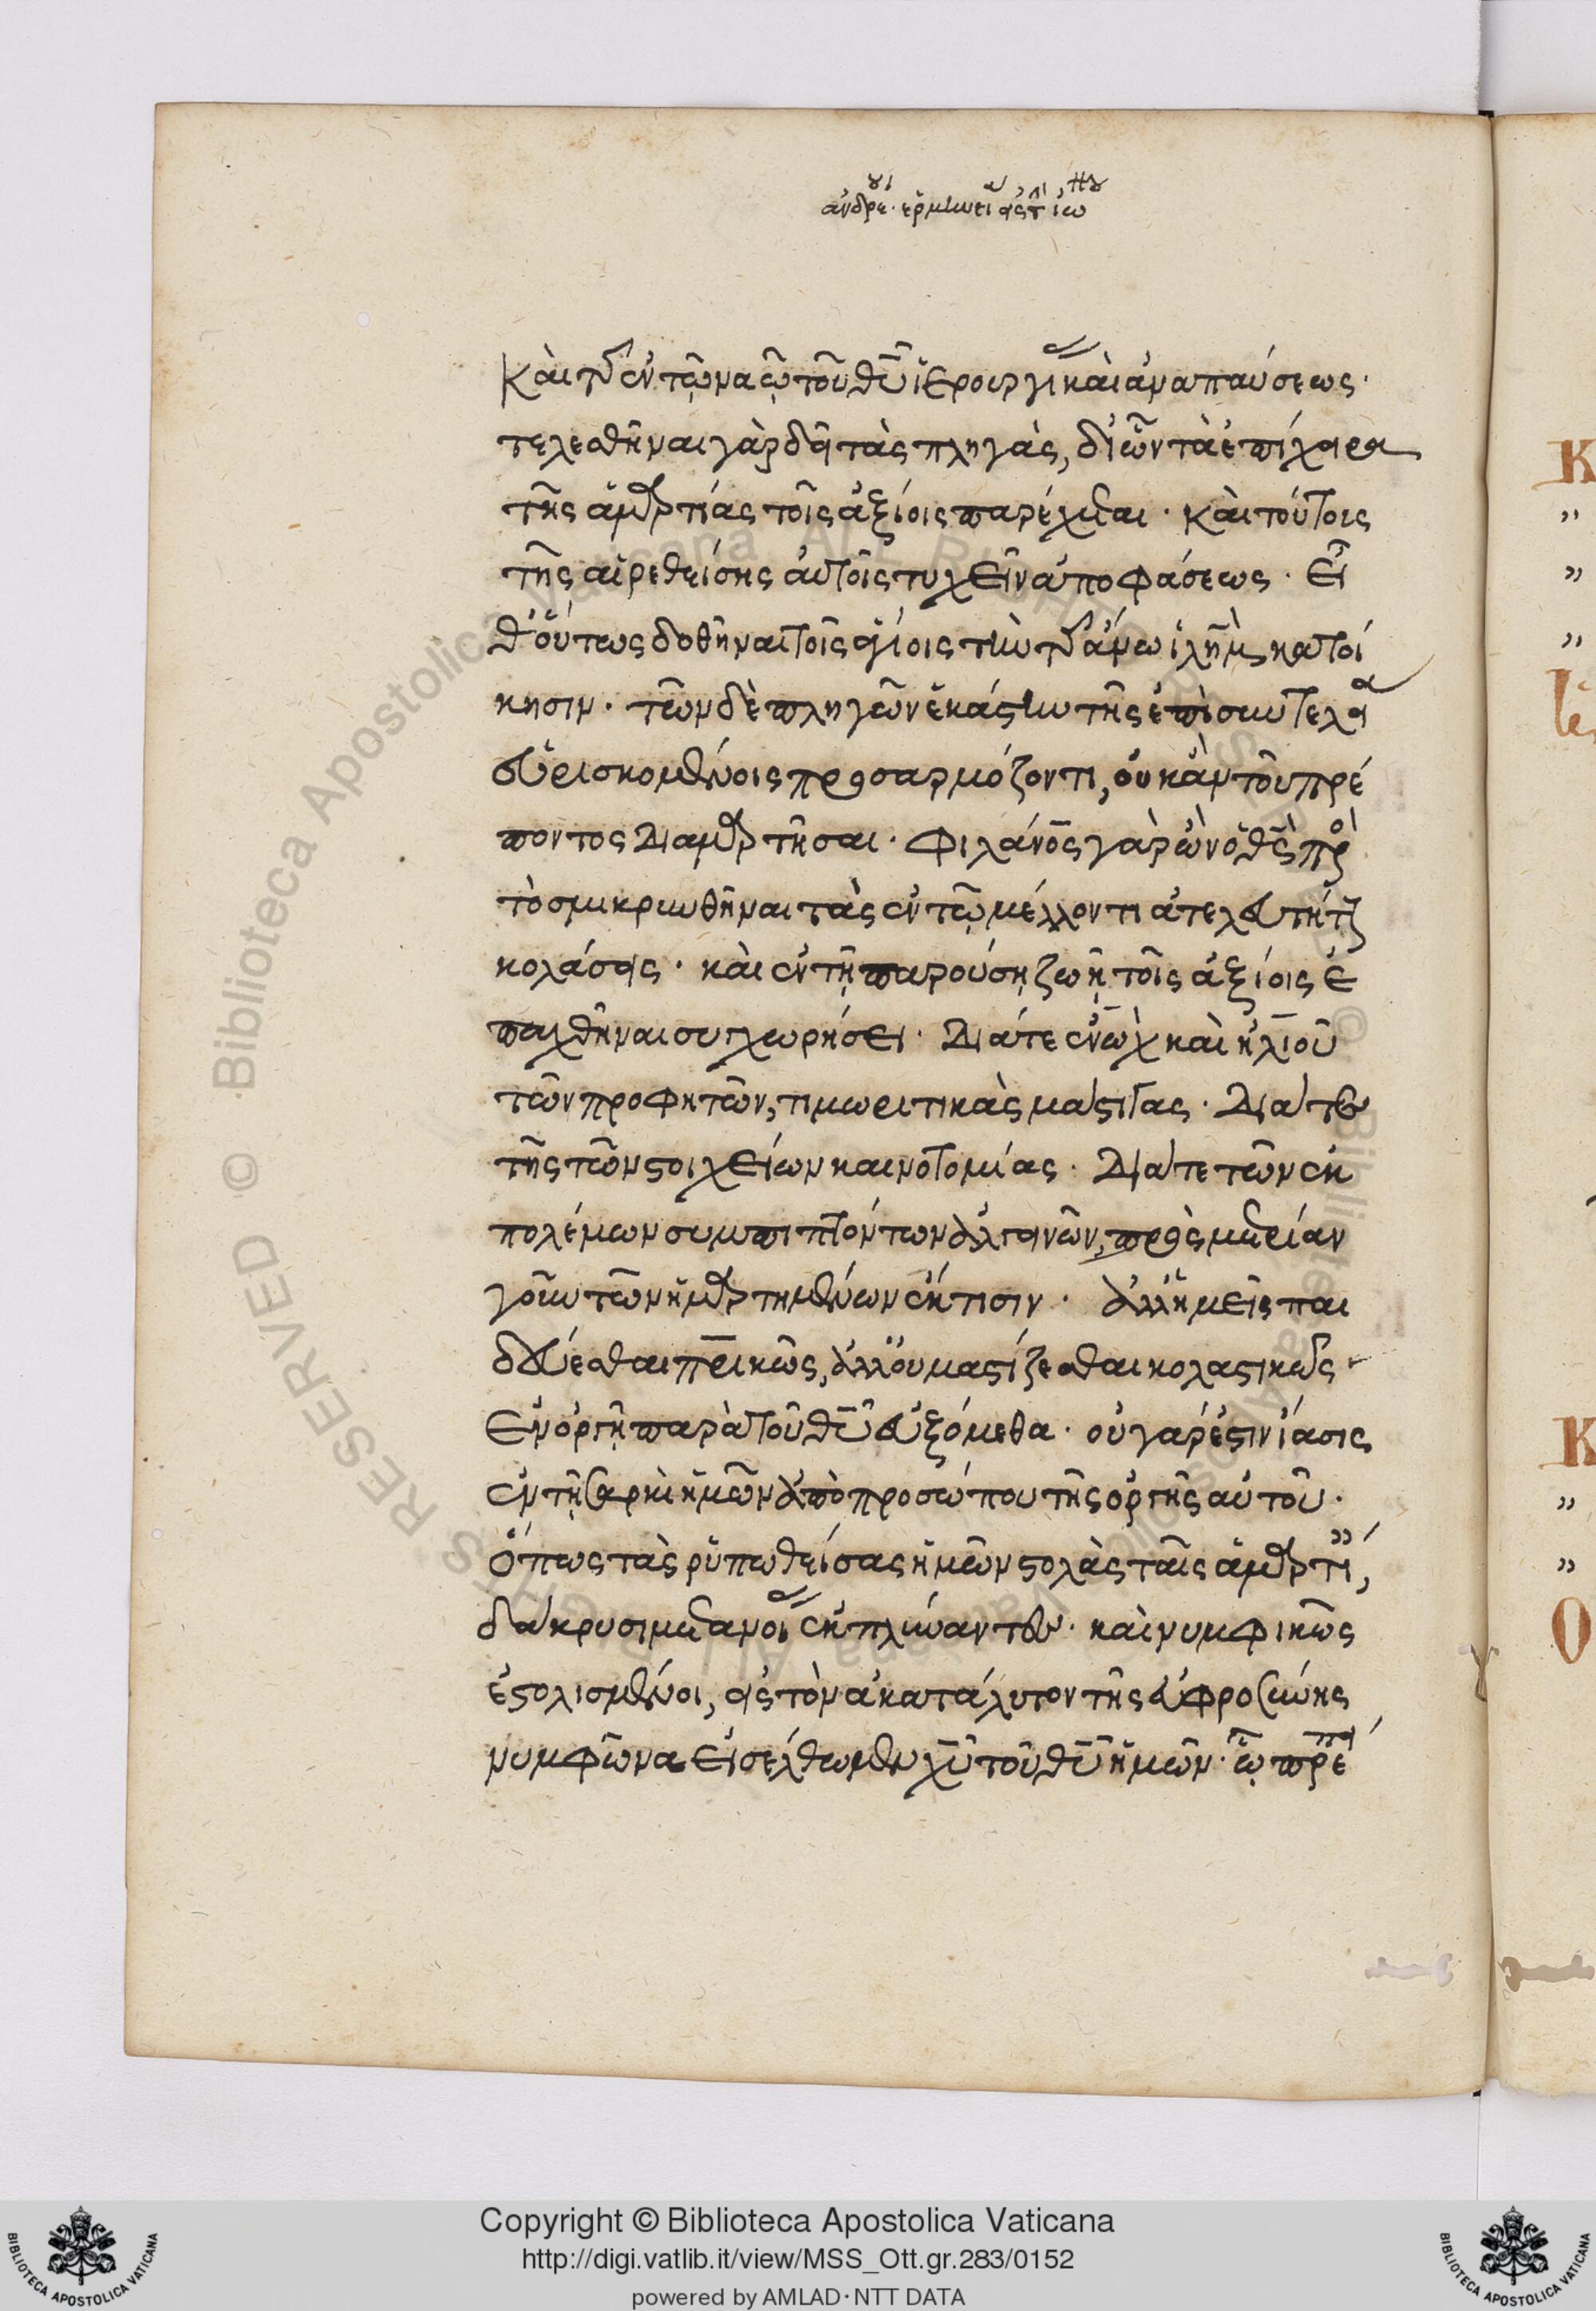 ἀνδρέου. ἑρμηνεία εἰς τὴν ἀποκάλυψιν ἰωάννου
Καὶ τῆς ἐν τῷ ναῷ τοῦ θῦ ἱερουργίας καὶ ἀναπαύσεως·
τελεσθῆναι γὰρ δεῖ τὰς πληγὰς, δι' ὧν τὰ ἐπίχειρα
τῆς ἁμαρτίας τοῖς ἀξίοις παρέχεται· καὶ τούτοις
τῆς αἱρεθείσης αὐτοῖς τυχεῖν ἀποφάσεως· εἶ
θ' οὕτως δοθῆναι τοῖς ἁγίοις τὴν τῆς ἄνω ἱλημ κατοί
κησιν· τῶν δὲ πληγῶν ἑκάστην τῆς ἐπὶ συντελείας
εὑρισκομένοις προσαρμόζοντι, οὐκ ἂν τοῦ πρέ
ποντος διαμαρτῆσαι· φιλάνος γὰρ ὢν ὁ θς πρὸς
τὸ σμικρυνθῆναι τὰς ἐν τῷ μέλλοντι ἀτελευτήτους
κολάσεις· καὶ ἐν τῇ παρούσῃ ζωῇ τοῖς ἀξίοις ἐ
παχθῆναι συγχωρήσει· Διά τε ἐνὼχ καὶ ἠλιοῦ
τῶν προφητῶν, τιμωριτικὰς μάστιγας· Διά τε
τῆς τῶν στοιχείων καινοτομίας· Διά τε τῶν ἐκ
πολέμων συμπιπτόντων ἀλγεινῶν, πρὸς μετρίαν
γοῦν τῶν ἡμαρτημένων ἔκτισιν· ἀλλ' ἡμεῖς παι
δεύεσθαι πρικῶς, ἀλλ' οὐ μαστίζεσθαι κολαστικῶς
ἐν ὀργῇ παρὰ τοῦ θῦ εὐξόμεθα· οὐ γάρ ἐστιν ἴασις
ἐν τῇ σαρκὶ ἡμῶν ἀπὸ προσώπου τῆς ὀργῆς αὐτοῦ·
Ὅπως τὰς ῥυπωθείσας ἡμῶν στολὰς ταῖς ἁμαρτίαις,
δάκρυσι μετανοίας ἐκπλύναντες· καὶ νυμφικῶς
ἐστολισμένοι, εἰς τὸν ἀκατάλυτον τῆς εὐφροσύνης
νυμφῶνα εἰσέλθωμεν χῦ τοῦ θῦ ἡμῶν· ᾧ πρέπει
Copyright © Biblioteca Apostolica Vaticana
http://digi.vatlib.it/view/MSS_Ott.gr.283/0152
powered by AMLAD · NTT DATA